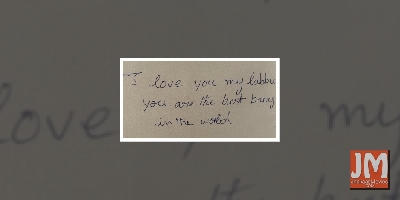 I love you my labbu
you are the best
in the world
JM